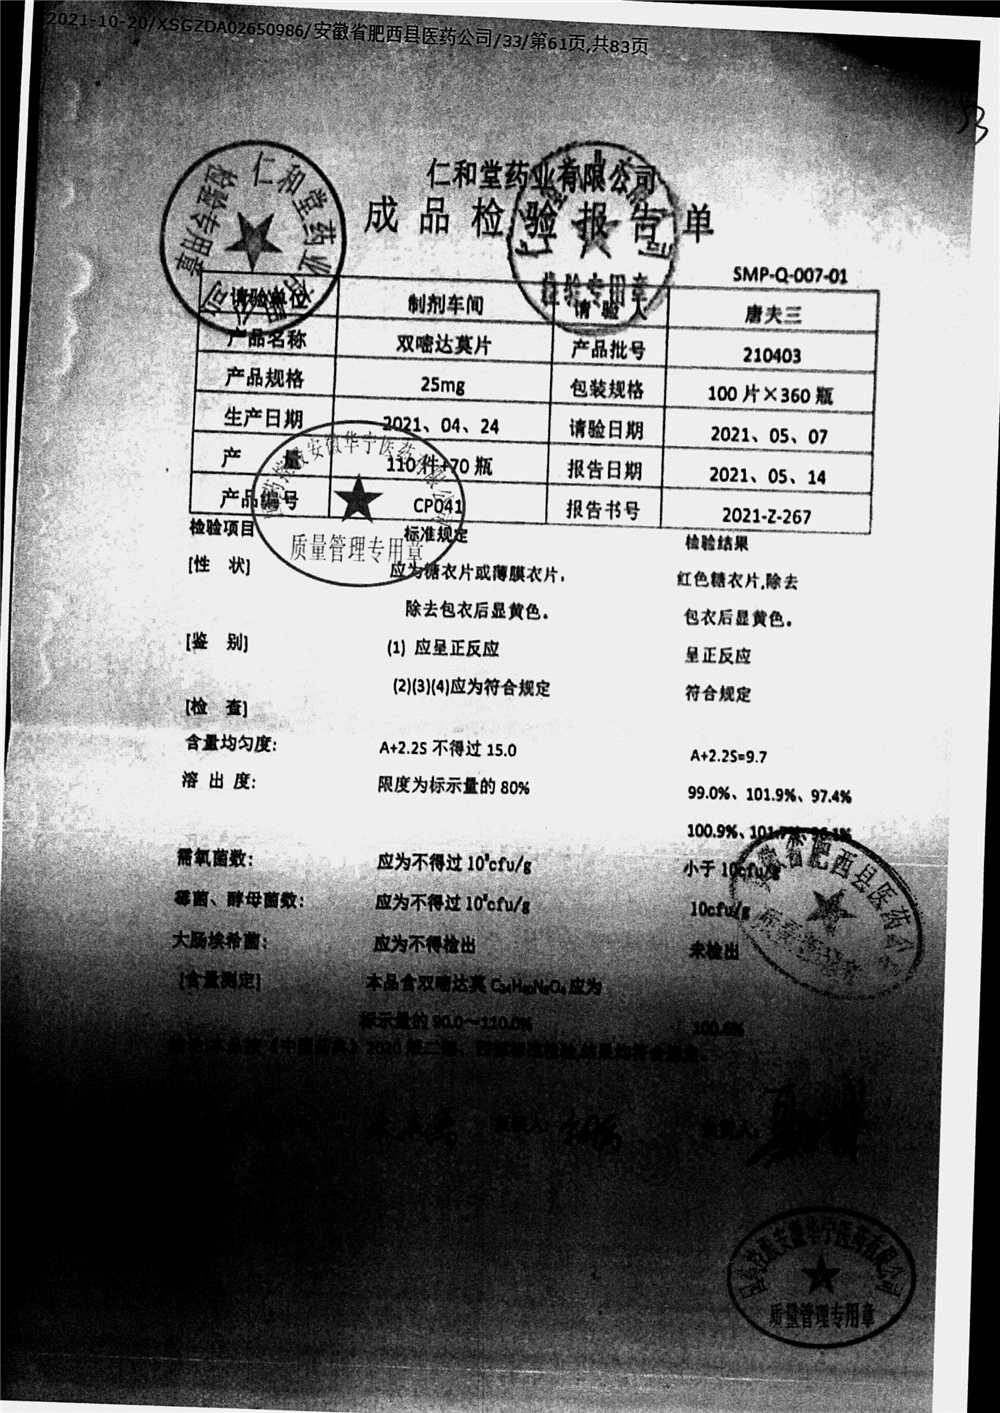 2021-10-20/XSGZDA02650986/安徽省肥西县医药公司/33/第61页,共83页
仁和堂药业有限公司
成品检验报告单
SMP-Q-007-01
请验单位 制剂车间 请验人 唐夫三
产品名称 双嘧达莫片 产品批号 210403
产品规格 25mg 包装规格 100片×360瓶
生产日期 2021、04、24 请验日期 2021、05、07
产 量 110件+70瓶 报告日期 2021、05、14
产品编号 CP041 报告书号 2021-Z-267
检验项目 标准规定 检验结果
[性 状] 应为糖衣片或薄膜衣片, 红色糖衣片,除去
除去包衣后显黄色。 包衣后显黄色。
[鉴 别] (1) 应呈正反应 呈正反应
(2)(3)(4)应为符合规定 符合规定
[检 查]
含量均匀度: A+2.2S 不得过 15.0 A+2.2S=9.7
溶 出 度: 限度为标示量的 80% 99.0%、101.9%、97.4%
100.9%、101.7%、96.1%
需氧菌数: 应为不得过 10³cfu/g 小于 10cfu/g
霉菌、酵母菌数: 应为不得过 10²cfu/g 10cfu/g
大肠埃希菌: 应为不得检出 未检出
[含量测定] 本品含双嘧达莫 C₂₄H₄₀N₈O₄ 应为
标示量的 90.0～110.0% 100.6%
仁和堂药业有限公司
检验专用章
仁和堂药业有限公司
检验专用章
安徽华宁医药有限公司
质量管理专用章
安徽省肥西县医药公司
安徽华宁医药有限公司
质量管理专用章